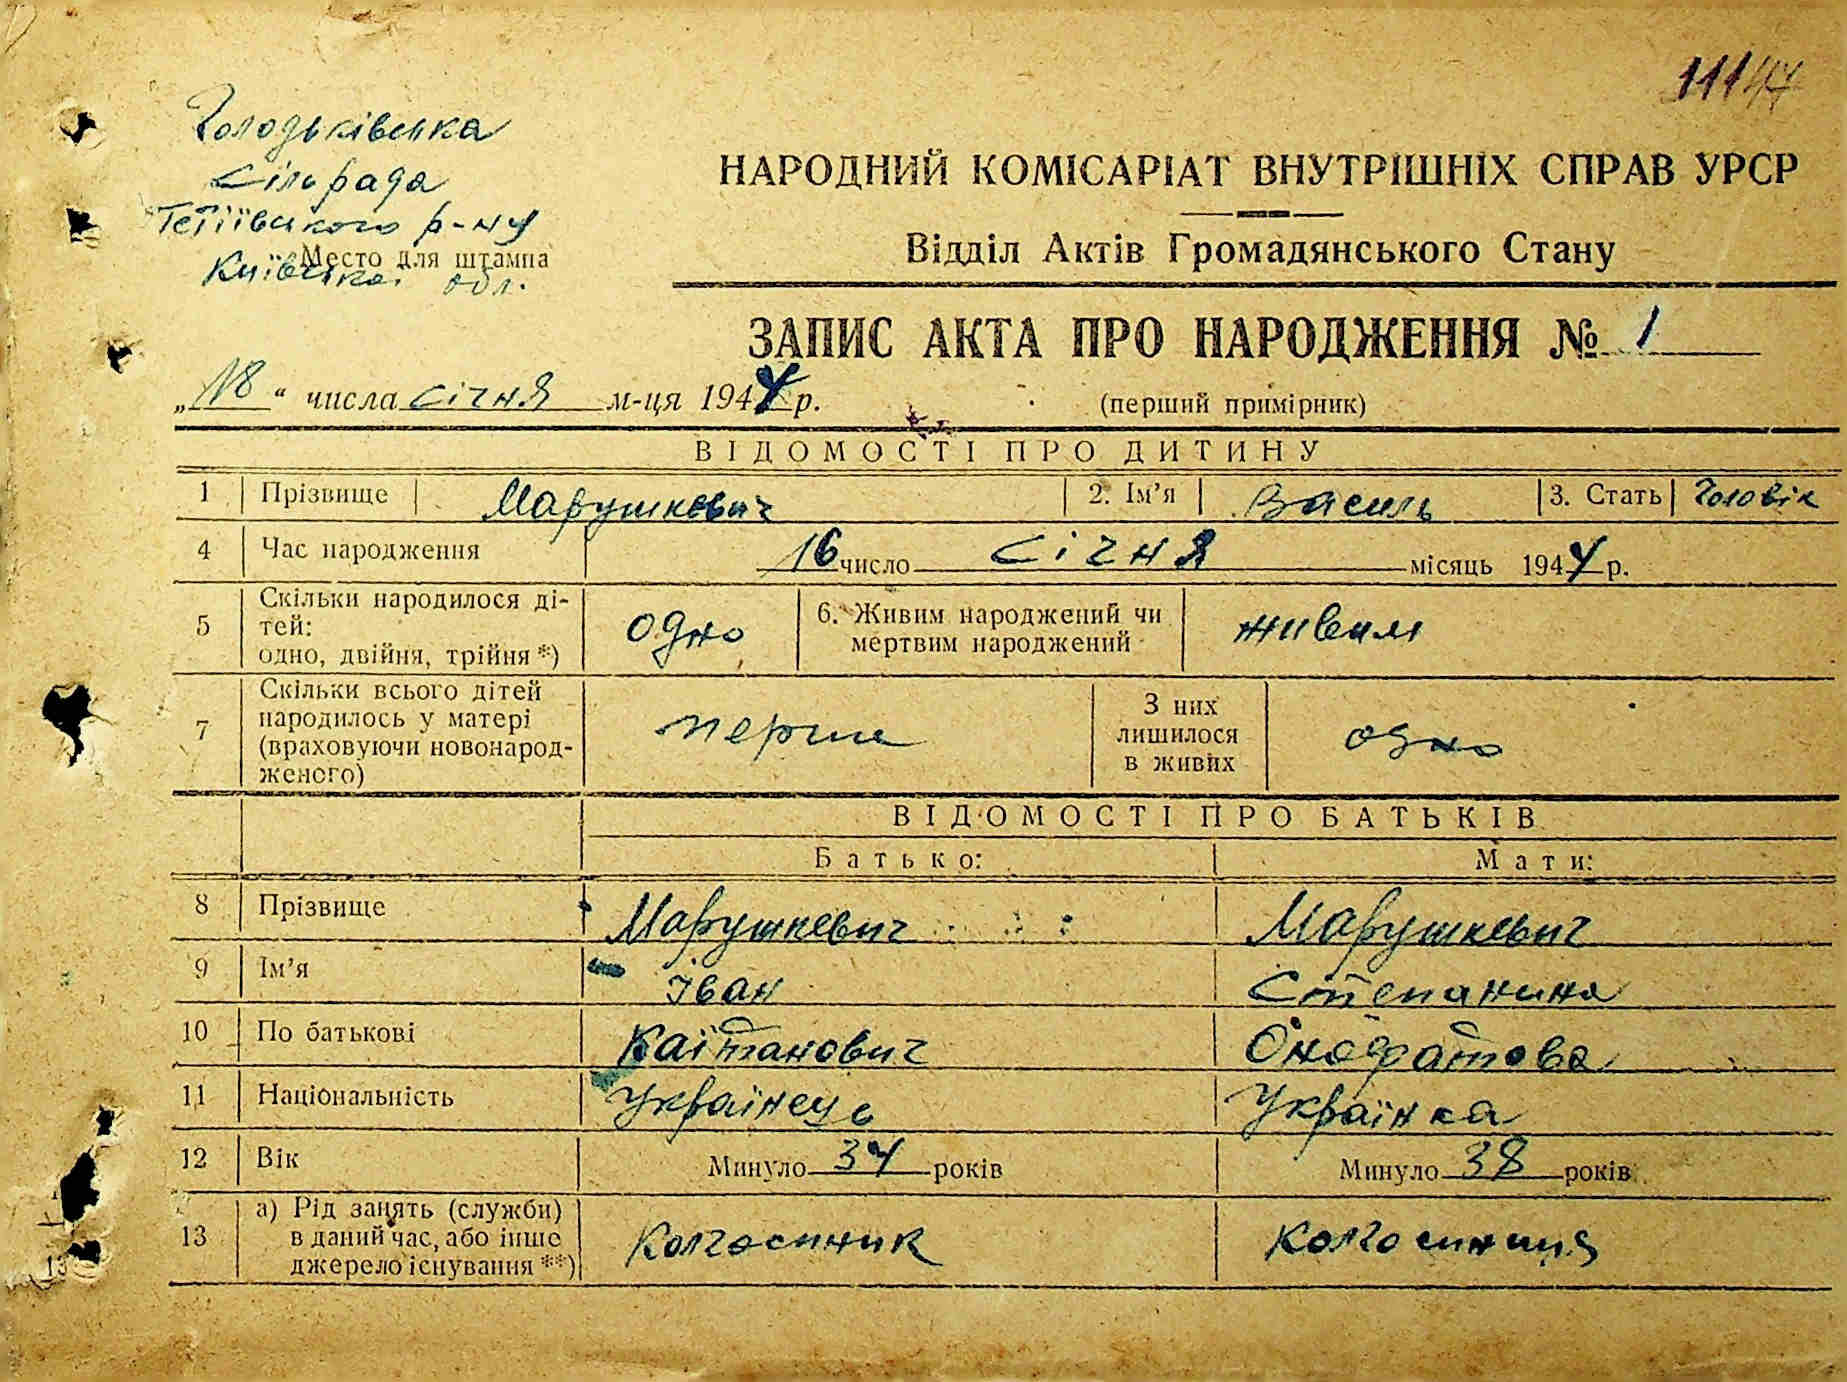 111
Голодьківська
сільрада
Тетіївського р-ну
Место для штампа
Київська обл.
НАРОДНИЙ КОМІСАРІАТ ВНУТРІШНІХ СПРАВ УРСР
Відділ Актів Громадянського Стану
ЗАПИС АКТА ПРО НАРОДЖЕННЯ № 1
„18“ числа січня м-ця 1944 р.
(перший примірник)
ВІДОМОСТІ ПРО ДИТИНУ
1 Прізвище Марушкевич 2. Ім'я Василь 3. Стать Чоловік
4 Час народження 16 число січня місяць 1944 р.
5 Скільки народилося ді-
тей:
одно, двійня, трійня *) одно 6. Живим народжений чи
мертвим народжений живим
7 Скільки всього дітей
народилось у матері
(враховуючи новонарод-
женого) перше З них
лишилося
в живих одно
ВІДОМОСТІ ПРО БАТЬКІВ
Батько: Мати:
8 Прізвище Марушкевич Марушкевич
9 Ім'я Іван Степанина
10 По батькові Каїтанович
11 Національність Українець Українка
12 Вік Минуло 34 років Минуло 38 років
13 а) Рід занять (служби)
в даний час, або інше
джерело існування **) Колгоспник Колгоспниця
13